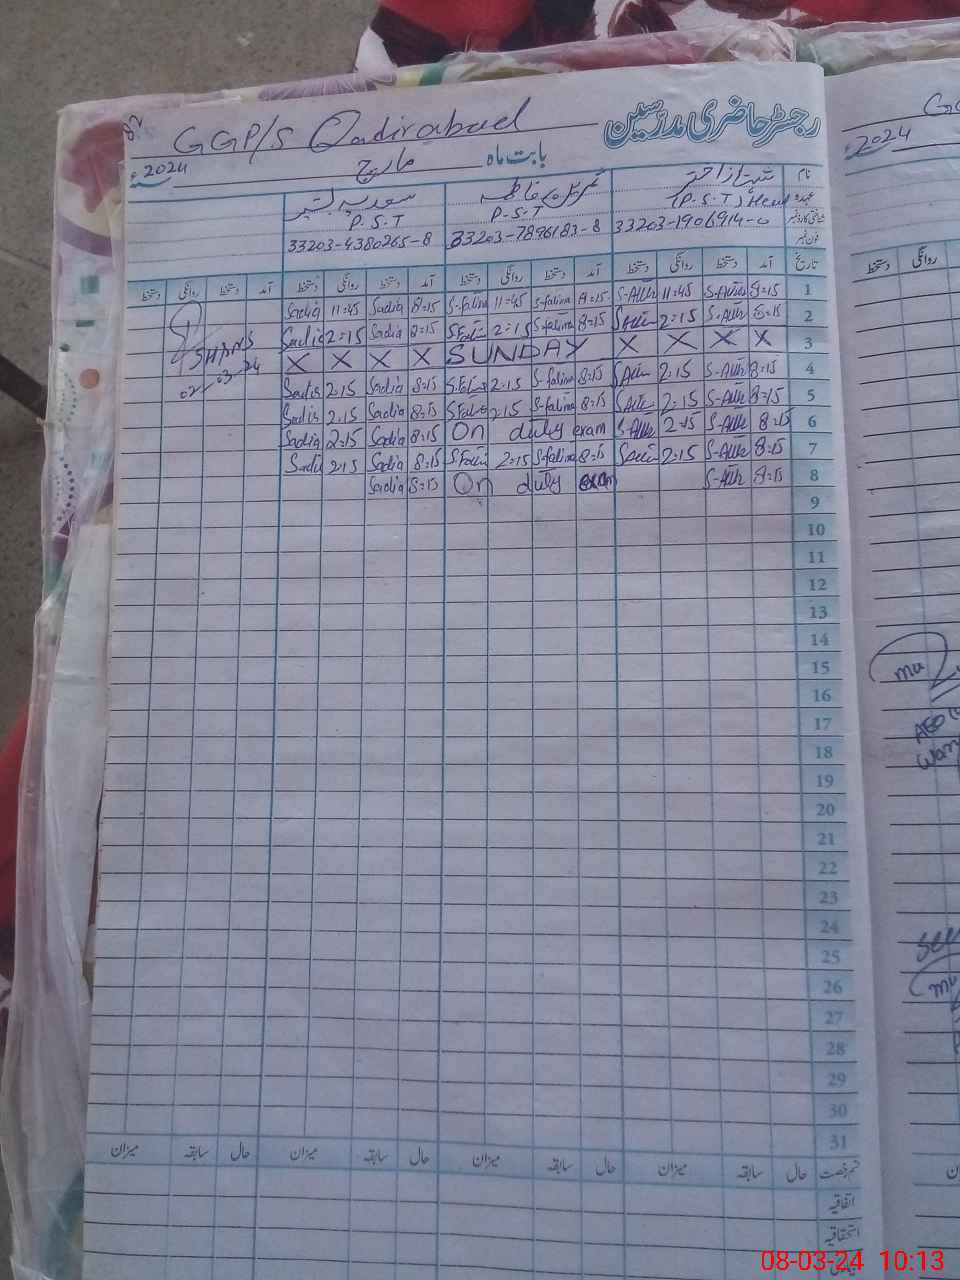 82
GGP/S Qadirabad رجسٹر حاضری مدرسین
2024ء مارچ بابت ماہ
نام شہناز اختر ثمرین فاطمہ سعدیہ بشیر
عہدہ (P.S.T) Head P.S.T P.S.T
شناختی کارڈ نمبر 33203-1906914-0 33203-7896183-8 33203-4380265-8
فون نمبر
تاریخ آمد دستخط روانگی دستخط آمد دستخط روانگی دستخط آمد دستخط روانگی دستخط آمد دستخط روانگی دستخط
1 8:15 S-Akh 11:45 S-Akh 8:15 S-fatima 11:45 S-fatima 8:15 Sadia 11:45 Sadia
2 8:15 S-Akh 2:15 8:15 S-fatima 2:15 8:15 Sadia 2:15 Sadia
3 X X X X SUNDAY X X X X
4 8:15 S-Akh 2:15 8:15 S-fatima 2:15 8:15 Sadia 2:15 Sadia
5 8:15 S-Akh 2:15 8:15 S-fatima 2:15 8:15 Sadia 2:15 Sadia
6 8:15 S-Akh 2:15 S-Akh On duty exam 8:15 Sadia 2:15 Sadia
7 8:15 S-Akh 2:15 8:15 S-fatima 2:15 8:15 Sadia 2:15 Sadia
8 8:15 S-Akh On duty exam 8:15 Sadia
02-03-24
9
10
11
12
13
14
15
16
17
18
19
20
21
22
23
24
25
26
27
28
29
30
31
قسم رخصت حال سابقہ میزان حال سابقہ میزان حال سابقہ میزان حال سابقہ میزان
اتفاقیہ
استحقاقیہ
2024
دستخط روانگی
AEO
08-03-24 10:13